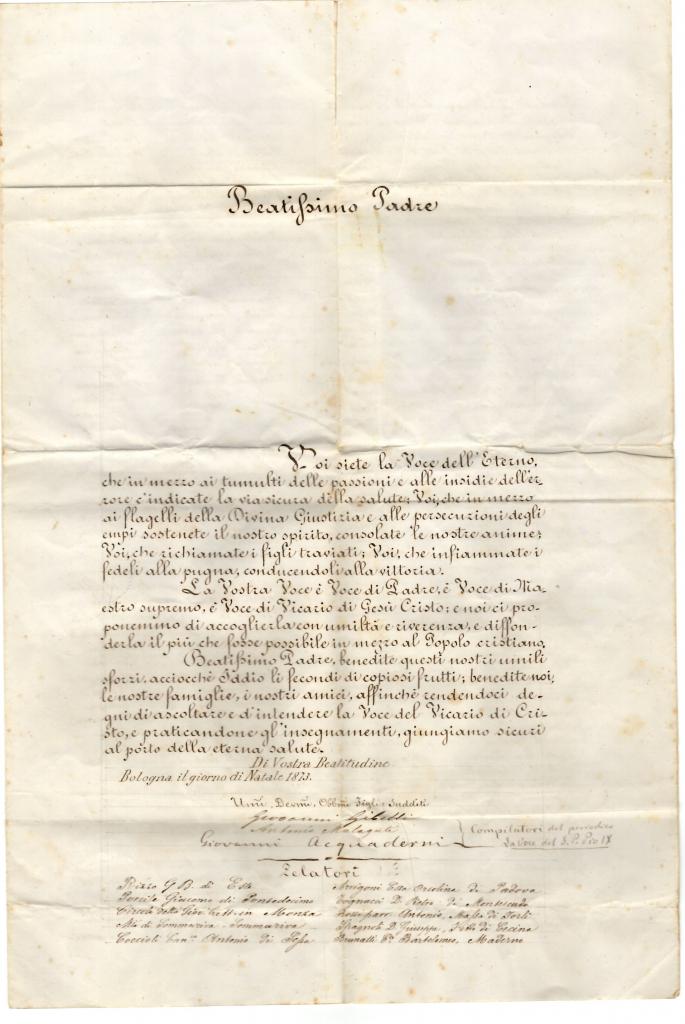 Beatissimo Padre
Voi siete la Voce dell'Eterno,
che in mezzo ai tumulti delle passioni e alle insidie dell'er-
rore c'indicate la via sicura della salute; Voi, che in mezzo
ai flagelli della Divina Giustizia e alle persecuzioni degli
empi sostenete il nostro spirito, consolate le nostre anime;
Voi, che richiamate i figli traviati; Voi, che infiammate i
fedeli alla pugna, conducendoli alla vittoria.
La Vostra Voce è Voce di Padre, è Voce di Ma-
estro supremo, è Voce di Vicario di Gesù Cristo; e noi ci pro-
ponemmo di accoglierla con umiltà e riverenza, e diffon-
derla il più che fosse possibile in mezzo al Popolo cristiano.
Beatissimo Padre, benedite questi nostri umili
sforzi, acciocchè Iddio li fecondi di copiosi frutti; benedite noi,
le nostre famiglie, i nostri amici, affinchè rendendoci de-
gni di ascoltare e d'intendere la Voce del Vicario di Cri-
sto, e praticandone gl'insegnamenti, giungiamo sicuri
al porto della eterna salute.
Di Vostra Beatitudine
Bologna il giorno di Natale 1873.
Umi, Devmi, Obbmi Figli e Sudditi
Giovanni
Antonio Malaguti
Giovanni Acquaderni
Compilatori del periodico
La Voce del S. P. Pio IX
Zelatori
Rizzo G B. di Este
Giacomo di Pontedecimo
in Monza
di Sommariva - Sommariva
Coccioli Can.co Antonio di
Arrigoni Ester Orsolina di Padova
D. Pietro di
Antonio, Massa di Forlì
Spagnoli D. Giuseppe, di Cecina
Brunatti Bartolomeo, Maderno